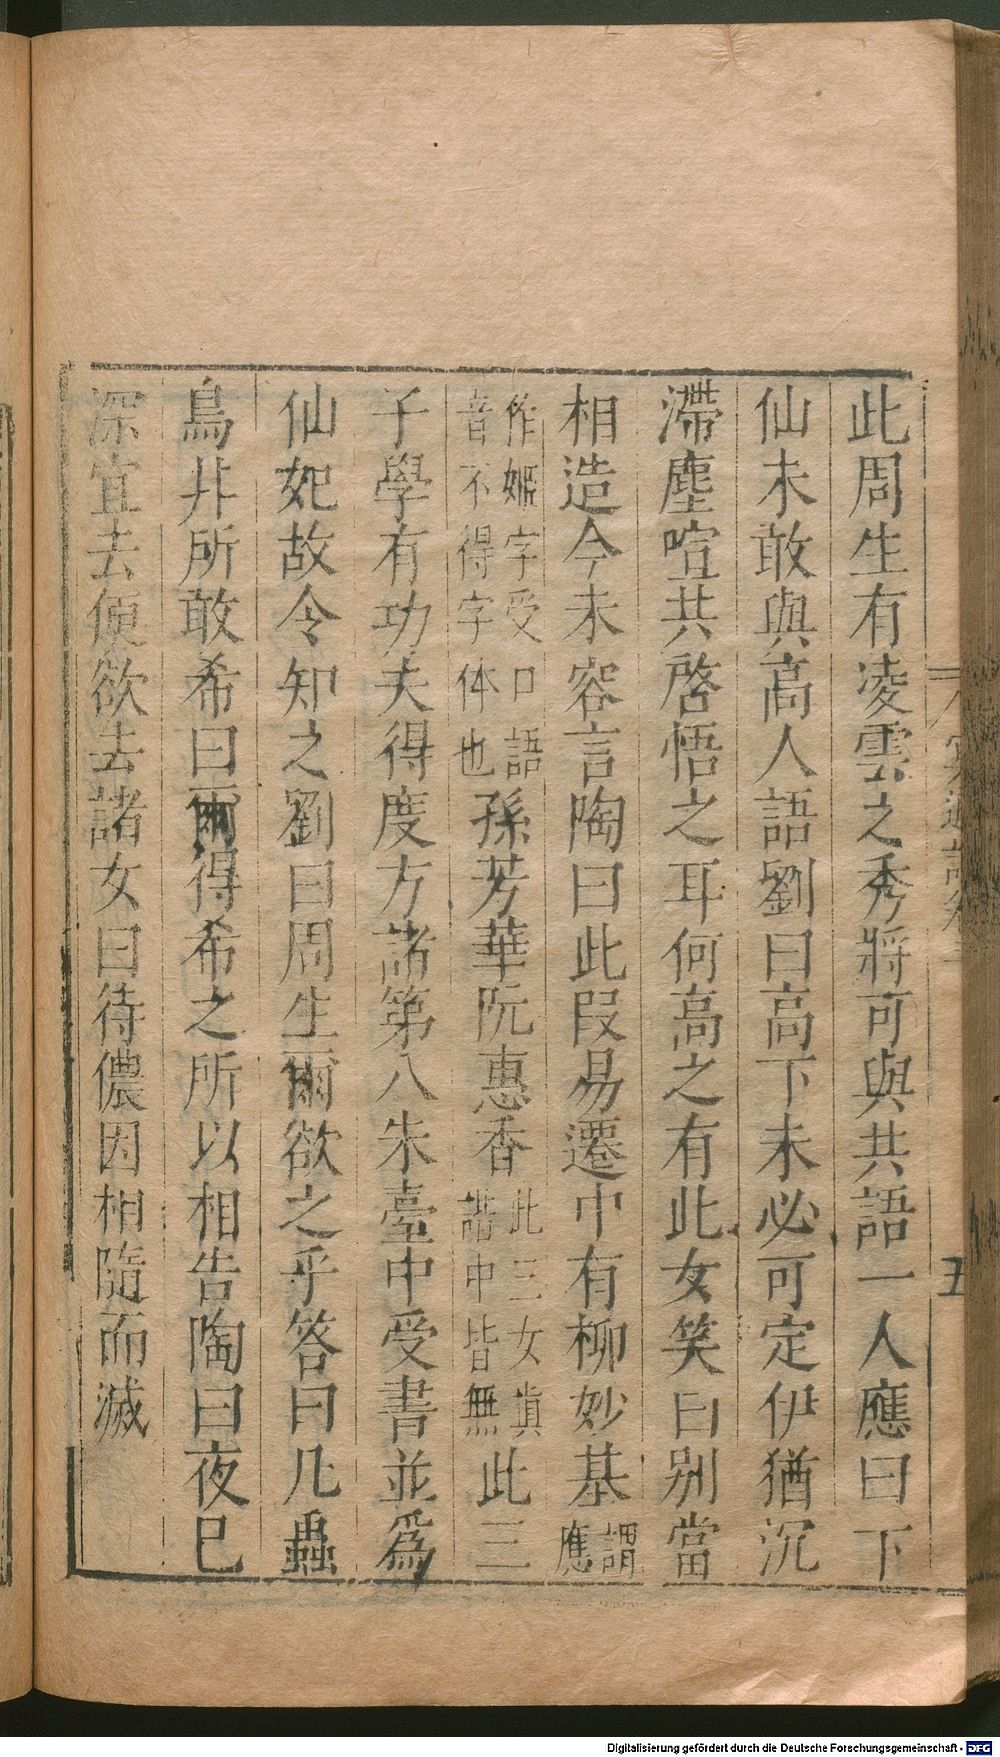 此周生有凌雲之秀將可與共語一人應曰下
仙未敢與高人語劉曰高下未必可定伊猶沉
滯塵喧共啓悟之耳何高之有此女笑曰别當
相造今未容言陶曰此叚易遷中有柳妙基謂應
作嫄字受口語音不得字体也孫芳華阮惠香此三女真誥中皆無此三
子學有功夫得度方諸第八朱臺中受書並爲
仙妃故令知之劉曰周生爾欲之乎答曰凡蟲
鳥井所敢希曰爾得希之所以相告陶曰夜已
深宜去便欲去諸女曰待儂因相隨而滅
五
Digitalisierung gefördert durch die Deutsche Forschungsgemeinschaft - DFG